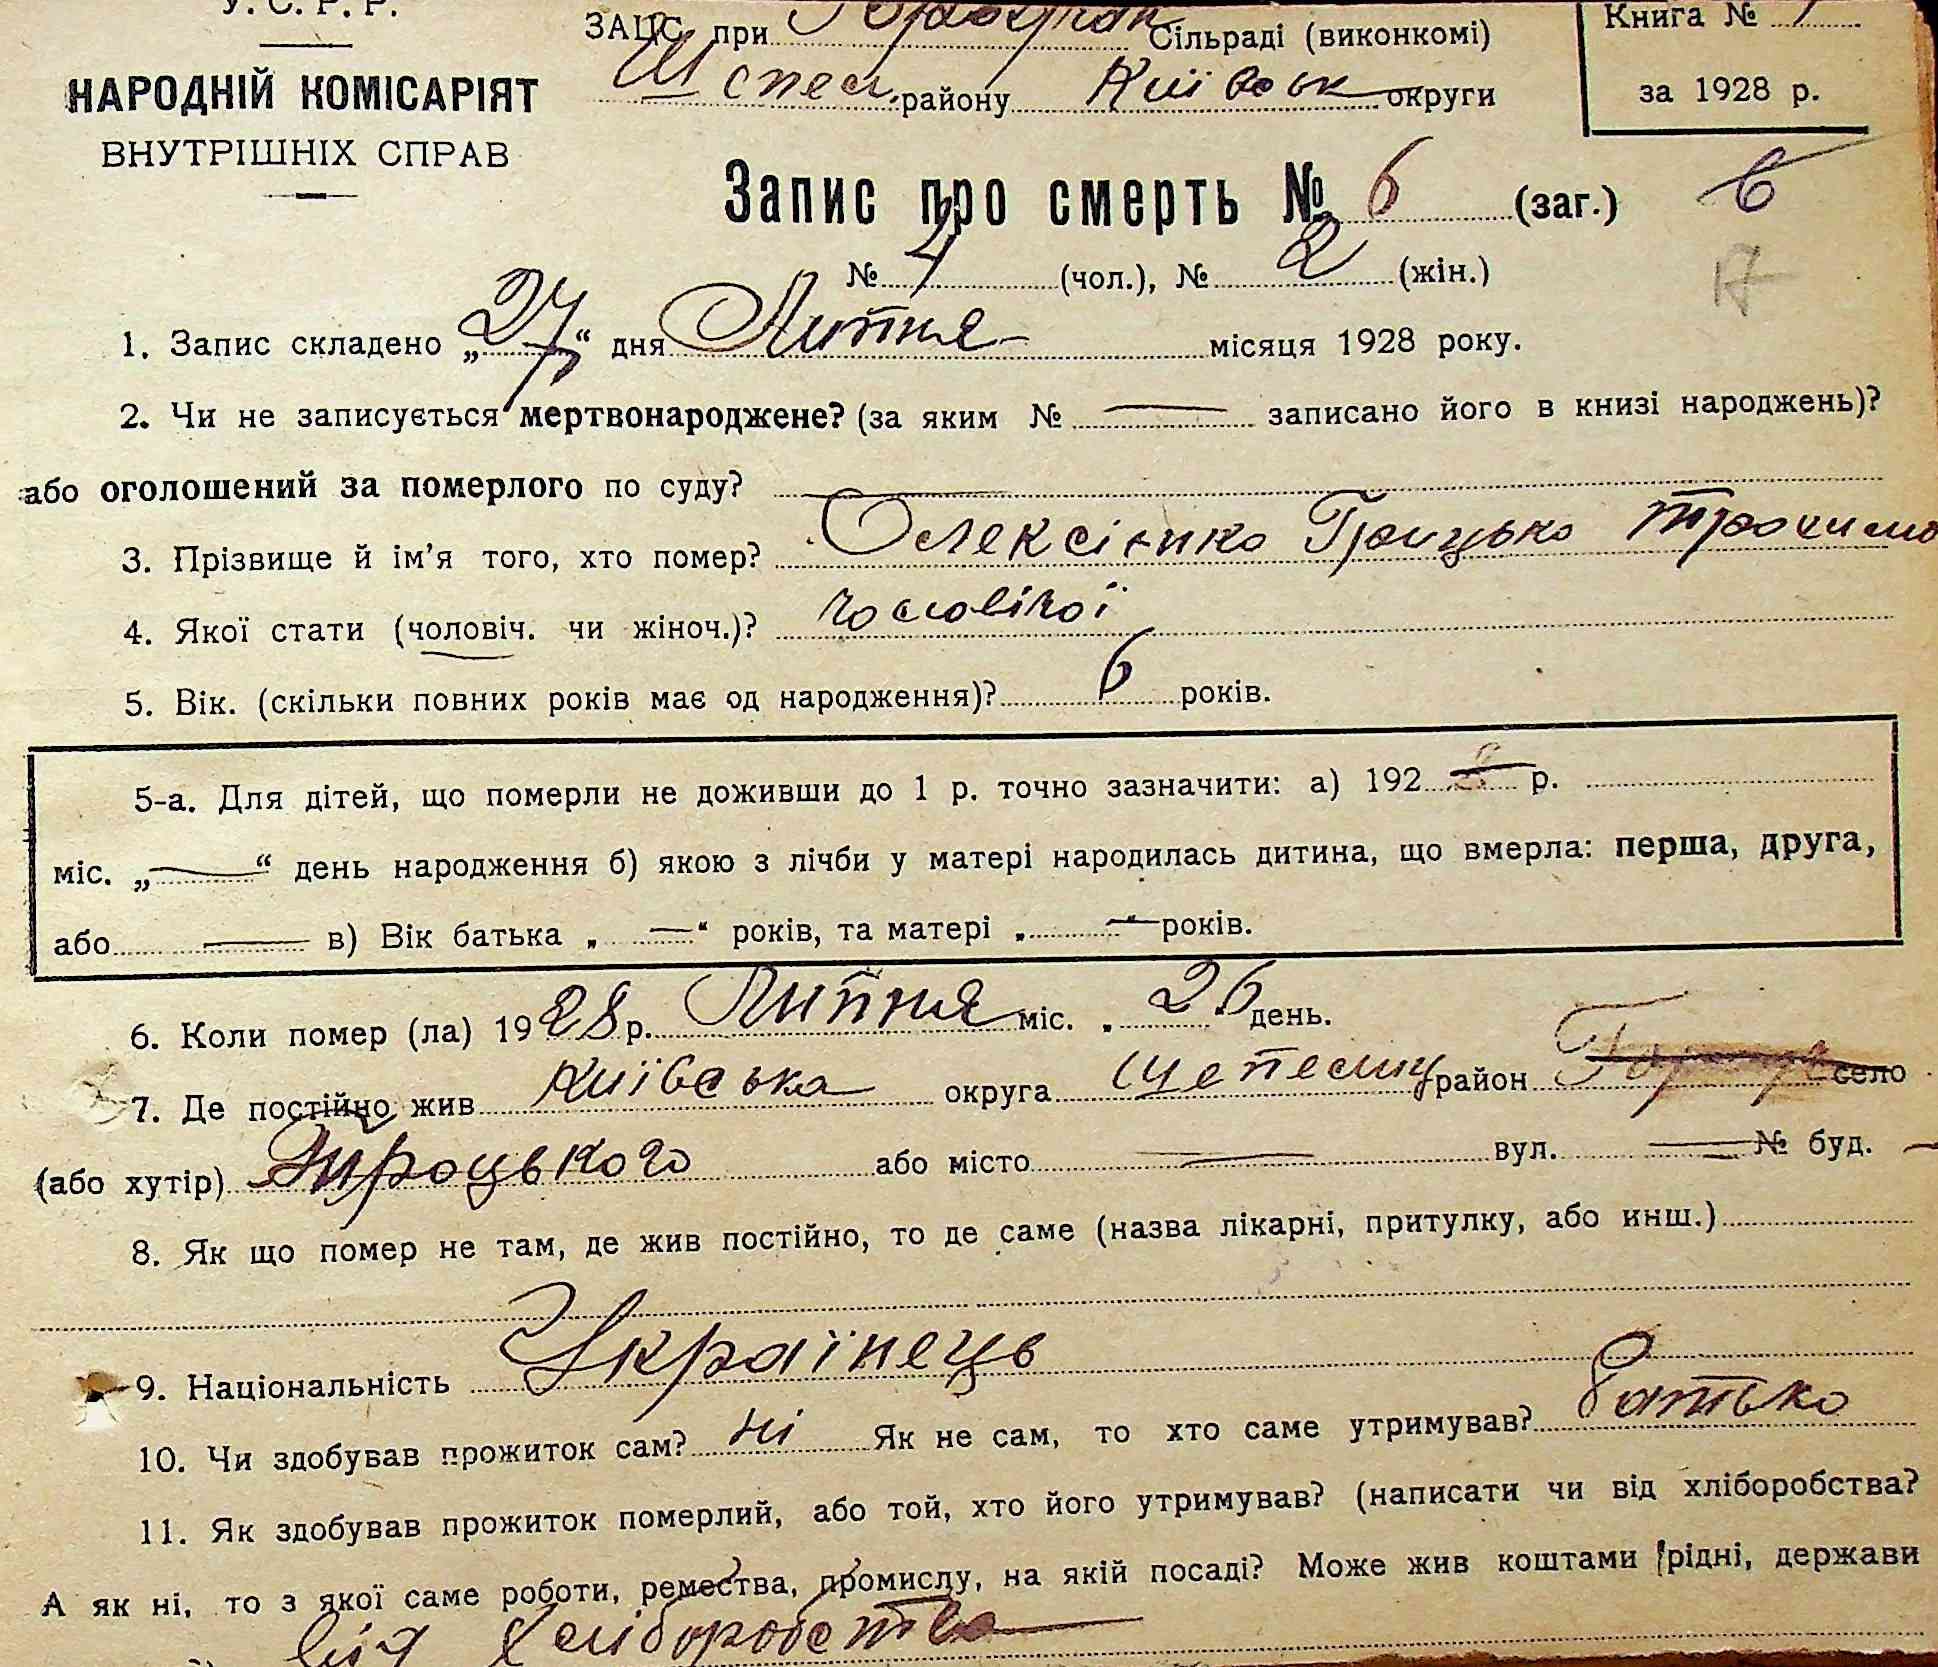 У. С. Р. Р.
НАРОДНІЙ КОМІСАРІЯТ
ВНУТРІШНІХ СПРАВ
ЗАЦС при Сільраді (виконкомі)
району Київськ округи
Книга №
за 1928 р.
Запис про смерть № 6 (заг.) 6
№ 4 (чол.), № 2 (жін.)
17
1. Запис складено „27“ дня Липня місяця 1928 року.
2. Чи не записується мертвонароджене? (за яким № — записано його в книзі народжень)?
або оголошений за померлого по суду? —
3. Прізвище й ім’я того, хто помер? Олексієнко Грицько Трохимо
4. Якої стати (чоловіч. чи жіноч.)? чоловічої
5. Вік. (скільки повних років має од народження)? 6 років.
5-а. Для дітей, що померли не доживши до 1 р. точно зазначити: а) 192 р.
міс. „—“ день народження б) якою з лічби у матері народилась дитина, що вмерла: перша, друга,
або — в) Вік батька „—“ років, та матері „—“ років.
6. Коли помер (ла) 1928 р. Липня міс. „26 день.
7. Де постійно жив Київська округа район село
(або хутір) Троцького або місто — вул. — № буд. —
8. Як що помер не там, де жив постійно, то де саме (назва лікарні, притулку, або инш.)
9. Національність Українець
10. Чи здобував прожиток сам? ні Як не сам, то хто саме утримував? батько
11. Як здобував прожиток померлий, або той, хто його утримував? (написати чи від хліборобства?
А як ні, то з якої саме роботи, ремества, промислу, на якій посаді? Може жив коштами рідні, держави
від хліборобства